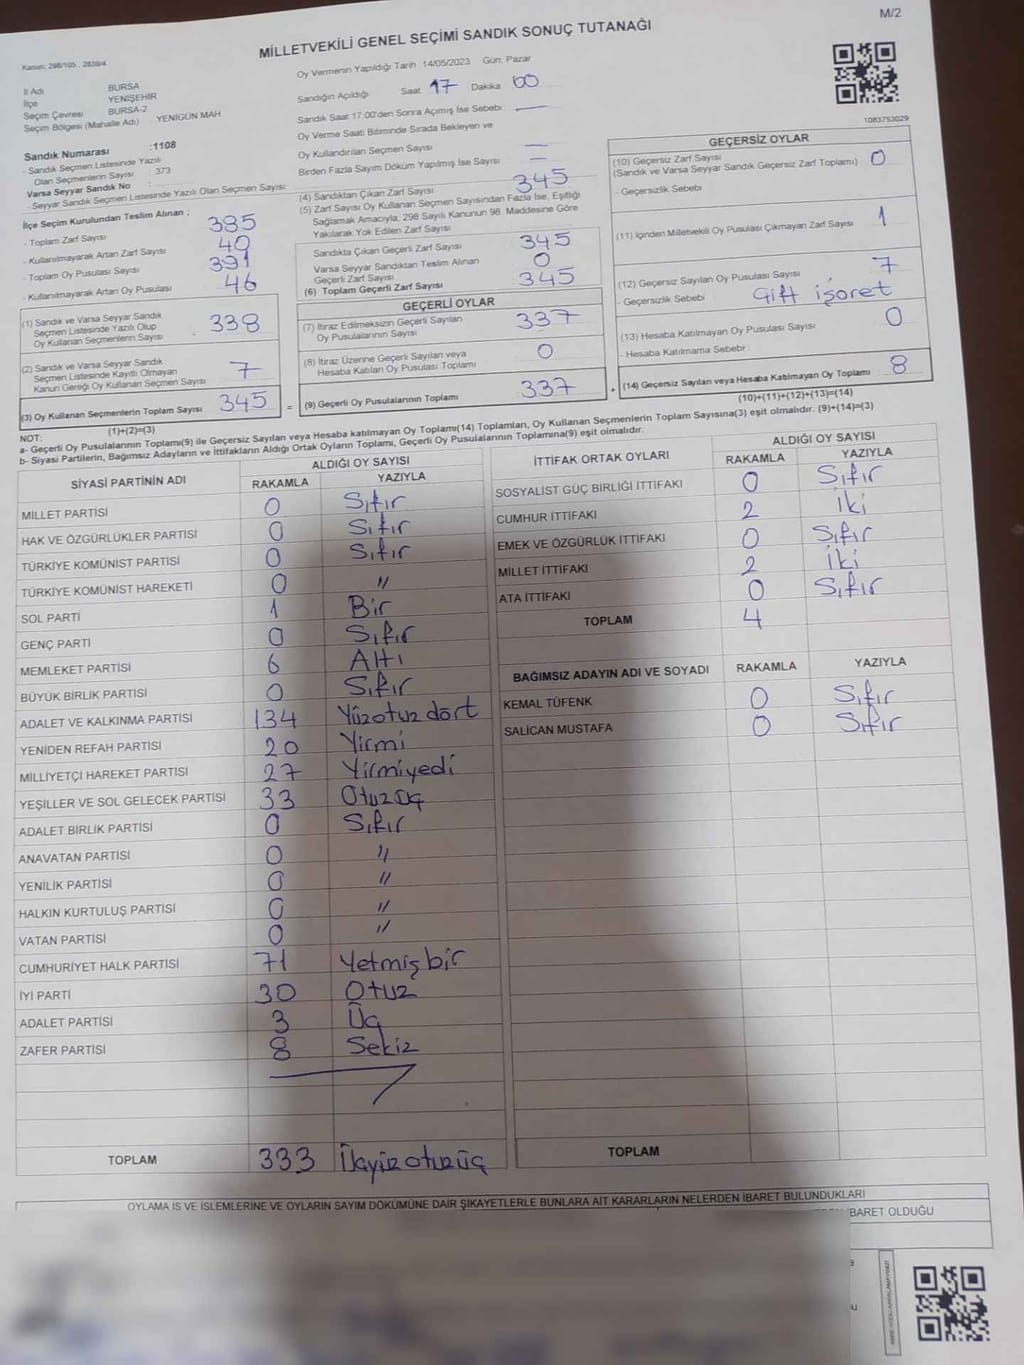 M/2
MİLLETVEKİLİ GENEL SEÇİMİ SANDIK SONUÇ TUTANAĞI
Kanun: 298/105 , 2839/4
İl Adı BURSA
İlçe YENİŞEHİR
Seçim Çevresi BURSA-2
Seçim Bölgesi (Mahalle Adı) YENİGÜN MAH
Sandık Numarası :1108
- Sandık Seçmen Listesinde Yazılı
Olan Seçmenlerin Sayısı : 373
Varsa Seyyar Sandık No
- Seyyar Sandık Seçmen Listesinde Yazılı Olan Seçmen Sayısı:
Oy Vermenin Yapıldığı Tarih :14/05/2023 Gün: Pazar
Sandığın Açıldığı Saat 17 Dakika 00
Sandık Saat 17.00'den Sonra Açımış İse Sebebi —
Oy Verme Saati Bitiminde Sırada Bekleyen ve
Oy Kullandırılan Seçmen Sayısı —
Birden Fazla Sayım Döküm Yapılmış İse Sayısı —
1083753029
İlçe Seçim Kurulundan Teslim Alınan ;
- Toplam Zarf Sayısı 385
- Kullanılmayarak Artan Zarf Sayısı 40
- Toplam Oy Pusulası Sayısı 391
- Kullanılmayarak Artan Oy Pusulası 46
(1) Sandık ve Varsa Seyyar Sandık
Seçmen Listesinde Yazılı Olup
Oy Kullanan Seçmenlerin Sayısı 338
(2) Sandık ve Varsa Seyyar Sandık
Seçmen Listesinde Kayıtlı Olmayan
Kanun Gereği Oy Kullanan Seçmen Sayısı 7
(3) Oy Kullanan Seçmenlerin Toplam Sayısı 345
(1)+(2)=(3)
(4) Sandıktan Çıkan Zarf Sayısı 345
(5) Zarf Sayısı Oy Kullanan Seçmen Sayısından Fazla İse, Eşitliği
Sağlamak Amacıyla, 298 Sayılı Kanunun 98. Maddesine Göre
Yakılarak Yok Edilen Zarf Sayısı
Sandıkta Çıkan Geçerli Zarf Sayısı 345
Varsa Seyyar Sandıktan Teslim Alınan
Geçerli Zarf Sayısı 0
(6) Toplam Geçerli Zarf Sayısı 345
GEÇERLİ OYLAR
(7) İtiraz Edilmeksizin Geçerli Sayılan
Oy Pusulalarının Sayısı 337
(8) İtiraz Üzerine Geçerli Sayılan veya
Hesaba Katılan Oy Pusulası Toplamı 0
= (9) Geçerli Oy Pusulalarının Toplamı 337
GEÇERSİZ OYLAR
(10) Geçersiz Zarf Sayısı
(Sandık ve Varsa Seyyar Sandık Geçersiz Zarf Toplamı) 0
- Geçersizlik Sebebi
(11) İçinden Milletvekili Oy Pusulası Çıkmayan Zarf Sayısı 1
(12) Geçersiz Sayılan Oy Pusulası Sayısı 7
- Geçersizlik Sebebi Çift işaret
(13) Hesaba Katılmayan Oy Pusulası Sayısı 0
- Hesaba Katılmama Sebebi :
+ (14) Geçersiz Sayılan veya Hesaba Katılmayan Oy Toplamı 8
(10)+(11)+(12)+(13)=(14)
NOT:
a- Geçerli Oy Pusulalarının Toplamı(9) ile Geçersiz Sayılan veya Hesaba katılmayan Oy Toplamı(14) Toplamları, Oy Kullanan Seçmenlerin Toplam Sayısına(3) eşit olmalıdır. (9)+(14)=(3)
b- Siyasi Partilerin, Bağımsız Adayların ve İttifakların Aldığı Ortak Oyların Toplamı, Geçerli Oy Pusulalarının Toplamına(9) eşit olmalıdır.
SİYASİ PARTİNİN ADI ALDIĞI OY SAYISI
RAKAMLA YAZIYLA
MİLLET PARTİSİ 0 Sıfır
HAK VE ÖZGÜRLÜKLER PARTİSİ 0 Sıfır
TÜRKİYE KOMÜNİST PARTİSİ 0 Sıfır
TÜRKİYE KOMÜNİST HAREKETİ 0 "
SOL PARTİ 1 Bir
GENÇ PARTİ 0 Sıfır
MEMLEKET PARTİSİ 6 Altı
BÜYÜK BİRLİK PARTİSİ 0 Sıfır
ADALET VE KALKINMA PARTİSİ 134 Yüzotuz dört
YENİDEN REFAH PARTİSİ 20 Yirmi
MİLLİYETÇİ HAREKET PARTİSİ 27 Yirmiyedi
YEŞİLLER VE SOL GELECEK PARTİSİ 33 Otuzüç
ADALET BİRLİK PARTİSİ 0 Sıfır
ANAVATAN PARTİSİ 0 "
YENİLİK PARTİSİ 0 "
HALKIN KURTULUŞ PARTİSİ 0 "
VATAN PARTİSİ 0 "
CUMHURİYET HALK PARTİSİ 71 Yetmiş bir
İYİ PARTİ 30 Otuz
ADALET PARTİSİ 3 Üç
ZAFER PARTİSİ 8 Sekiz
TOPLAM 333 Üçyüzotuzüç
İTTİFAK ORTAK OYLARI ALDIĞI OY SAYISI
RAKAMLA YAZIYLA
SOSYALİST GÜÇ BİRLİĞİ İTTİFAKI 0 Sıfır
CUMHUR İTTİFAKI 2 İki
EMEK VE ÖZGÜRLÜK İTTİFAKI 0 Sıfır
MİLLET İTTİFAKI 2 İki
ATA İTTİFAKI 0 Sıfır
TOPLAM 4
BAĞIMSIZ ADAYIN ADI VE SOYADI RAKAMLA YAZIYLA
KEMAL TÜFENK 0 Sıfır
SALİCAN MUSTAFA 0 Sıfır
TOPLAM
OYLAMA İŞ VE İŞLEMLERİNE VE OYLARIN SAYIM DÖKÜMÜNE DAİR ŞİKAYETLERLE BUNLARA AİT KARARLARIN NELERDEN İBARET BULUNDUKLARI
İBARET OLDUĞU